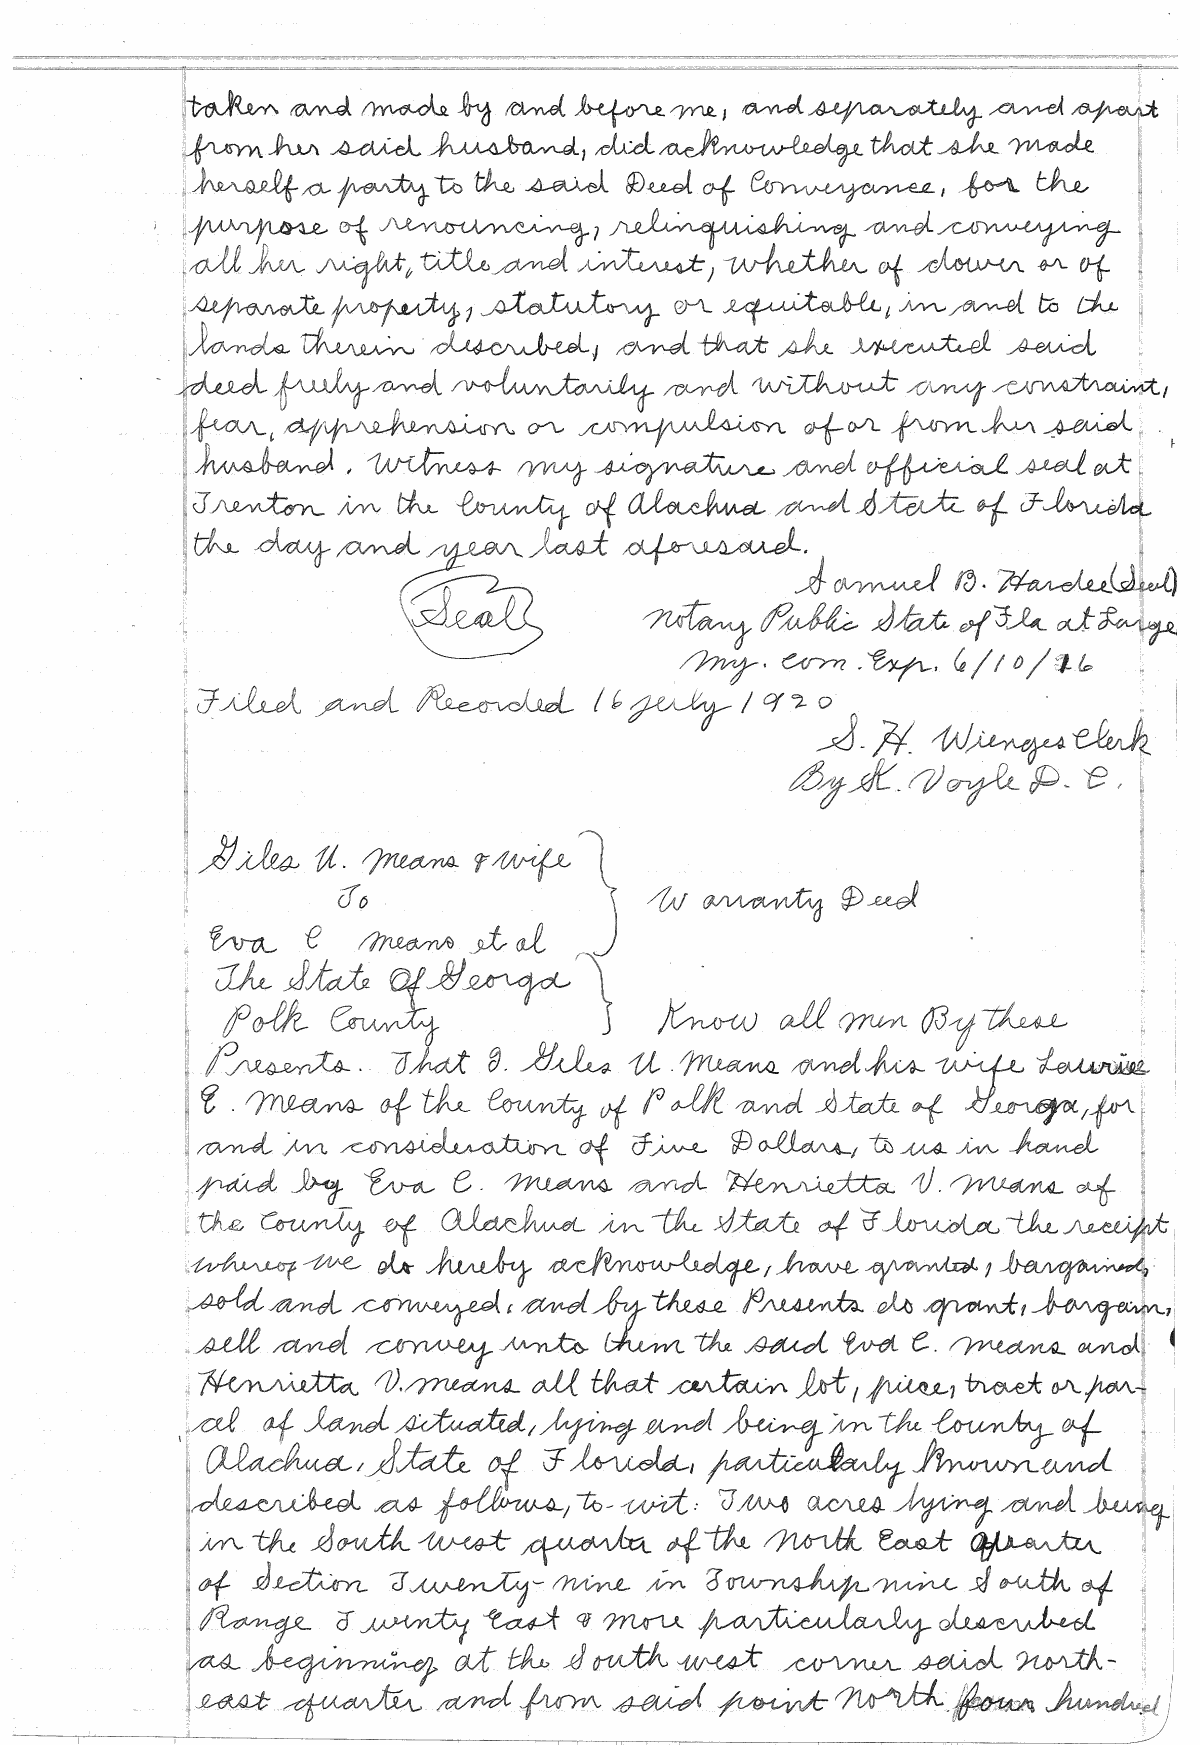 taken and made by and before me, and separately and apart
from her said husband, did acknowledge that she made
herself a party to the said Deed of Conveyance, for the
purpose of renouncing, relinquishing and conveying
all her right, title and interest, whether of dower or of
separate property, statutory or equitable, in and to the
lands therein described, and that she executed said
deed freely and voluntarily and without any constraint,
fear, apprehension or compulsion of or from her said
husband. Witness my signature and official seal at
Trenton in the County of Alachua and State of Florida
the day and year last aforesaid.
Samuel B. Hardee (Seal)
Seal
Notary Public State of Fla at Large
My. Com. Exp. 6/10/16
Filed and Recorded 16 July 1920
S. H. Wienges Clerk
By K. Voyle D. C.
Giles U. Means & wife
To
Warranty Deed
Eva C Means et al
The State Of Georga
Polk County
Know all men By these
Presents. That I. Giles U. Means and his wife
E. Means of the County of Polk and State of Georga, for
and in consideration of Five Dollars, to us in hand
paid by Eva C. Means and Henrietta V. Means of
the County of Alachua in the State of Florida the receipt
whereof we do hereby acknowledge, have granted, bargained,
sold and conveyed, and by these Presents do grant, bargain,
sell and convey unto them the said Eva C. Means and
Henrietta V. Means all that certain lot, piece, tract or par-
cel of land situated, lying and being in the County of
Alachua, State of Florida, particularly known and
described as follows, to-wit: Two acres lying and being
in the South west quarter of the North East Quarter
of Section Twenty-nine in Township nine South of
Range Twenty East & more particularly described
as beginning at the South west corner said North-
east quarter and from said point North four hundred